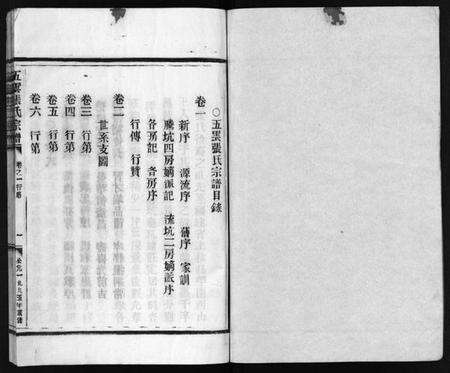 ○五雲張氏宗譜目錄
卷一
新序 源流序 舊序 家訓
騰坑四房嫡派記 流坑二房嫡派序
各房記 各房序
行傳 行贊
卷二
世系支圖
卷三 行第
卷四 行第
卷五 行第
卷六 行第
五雲張氏宗譜
卷之一行第
一
公元一九九五年重修